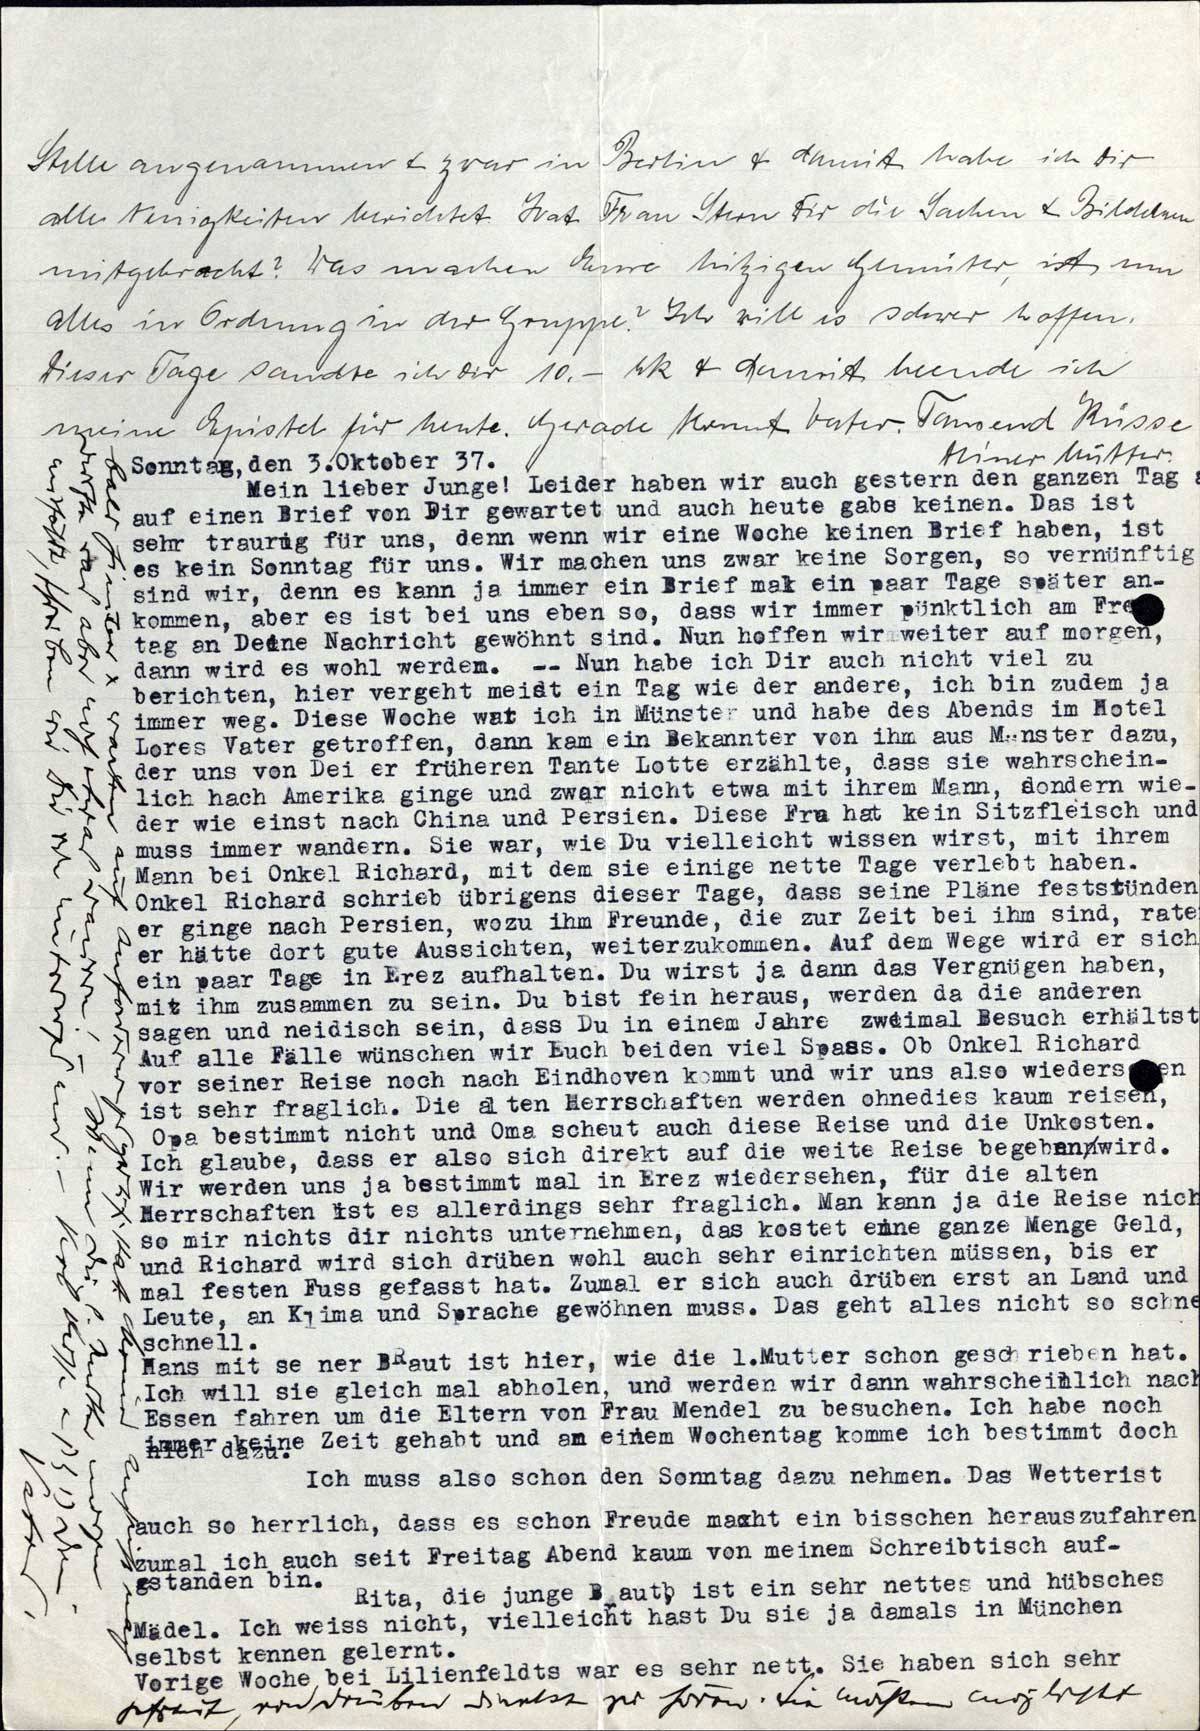 Stelle angenommen & zwar in Berlin & damit habe ich Dir
alle Neuigkeiten berichtet. Hat Frau Stern Dir die Sachen & Bildchen
mitgebracht? Was machen Eure hitzigen Gemüter, ist nun
alles in Ordnung in der Gruppe? Ich will es schwer hoffen.
Dieser Tage sandte ich Dir 10.- Mk & damit beende ich
meine Epistel für heute. Gerade kommt Vater. Tausend Küsse
Deiner Mutter.
Sonntag, den 3.Oktober 37.
Mein lieber Junge! Leider haben wir auch gestern den ganzen Tag a
auf einen Brief von Dir gewartet und auch heute gabs keinen. Das ist
sehr traurig für uns, denn wenn wir eine Woche keinen Brief haben, ist
es kein Sonntag für uns. Wir machen uns zwar keine Sorgen, so vernünftig
sind wir, denn es kann ja immer ein Brief mal ein paar Tage später an-
kommen, aber es ist bei uns eben so, dass wir immer pünktlich am Fre
tag an Deine Nachricht gewöhnt sind. Nun hoffen wir weiter auf morgen,
dann wird es wohl werden. -- Nun habe ich Dir auch nicht viel zu
berichten, hier vergeht meist ein Tag wie der andere, ich bin zudem ja
immer weg. Diese Woche war ich in Münster und habe des Abends im Hotel
Lores Vater getroffen, dann kam ein Bekannter von ihm aus Münster dazu,
der uns von Dei er früheren Tante Lotte erzählte, dass sie wahrschein-
lich hach Amerika ginge und zwar nicht etwa mit ihrem Mann, sondern wie-
der wie einst nach China und Persien. Diese Fra hat kein Sitzfleisch und
muss immer wandern. Sie war, wie Du vielleicht wissen wirst, mit ihrem
Mann bei Onkel Richard, mit dem sie einige nette Tage verlebt haben.
Onkel Richard schrieb übrigens dieser Tage, dass seine Pläne festständen
er ginge nach Persien, wozu ihm Freunde, die zur Zeit bei ihm sind, rate
er hätte dort gute Aussichten, weiterzukommen. Auf dem Wege wird er sich
ein paar Tage in Erez aufhalten. Du wirst ja dann das Vergnügen haben,
mit ihm zusammen zu sein. Du bist fein heraus, werden da die anderen
sagen und neidisch sein, dass Du in einem Jahre zweimal Besuch erhältst
Auf alle Fälle wünschen wir Euch beiden viel Spass. Ob Onkel Richard
vor seiner Reise noch nach Eindhoven kommt und wir uns also wieders en
ist sehr fraglich. Die alten Herrschaften werden ohnedies kaum reisen,
Opa bestimmt nicht und Oma scheut auch diese Reise und die Unkosten.
Ich glaube, dass er also sich direkt auf die weite Reise begeben/wird.
Wir werden uns ja bestimmt mal in Erez wiedersehen, für die alten
Herrschaften ist es allerdings sehr fraglich. Man kann ja die Reise nich
so mir nichts dir nichts unternehmen, das kostet eine ganze Menge Geld,
und Richard wird sich drüben wohl auch sehr einrichten müssen, bis er
mal festen Fuss gefasst hat. Zumal er sich auch drüben erst an Land und
Leute, an Klima und Sprache gewöhnen muss. Das geht alles nicht so schne
schnell.
Hans mit se ner BRaut ist hier, wie die l.Mutter schon geschrieben hat.
Ich will sie gleich mal abholen, und werden wir dann wahrscheinlich nach
Essen fahren um die Eltern von Frau Mendel zu besuchen. Ich habe noch
immer keine Zeit gehabt und am einem Wochentag komme ich bestimmt doch
nich dazu.
Ich muss also schon den Sonntag dazu nehmen. Das Wetterist
auch so herrlich, dass es schon Freude macht ein bisschen herauszufahren
zumal ich auch seit Freitag Abend kaum von meinem Schreibtisch auf-
gstanden bin.
Rita, die junge Braut, ist ein sehr nettes und hübsches
Mädel. Ich weiss nicht, vielleicht hast Du sie ja damals in München
selbst kennen gelernt.
Vorige Woche bei Lilienfeldts war es sehr nett. Sie haben sich sehr
gefreut, von drüben direkt zu hören. Sie möchten möglichst
bald hinüber & warten auf
Vater.